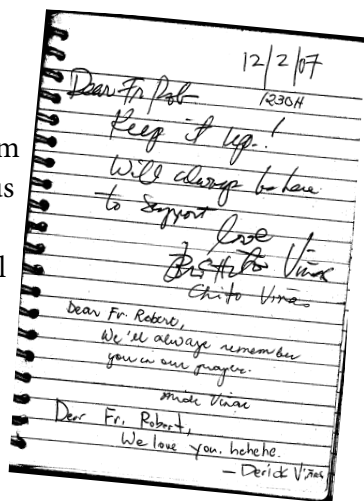 12/2/07
1230H
Dear Fr Rob
Keep it up!
Will always be here
to support
love
Viñas
Chito Viñas
Dear Fr. Robert,
We'll always remember
you in our prayer.
Viñas
Dear Fr. Robert,
We love you. hehehe.
— Derick Viñas
m
us
l